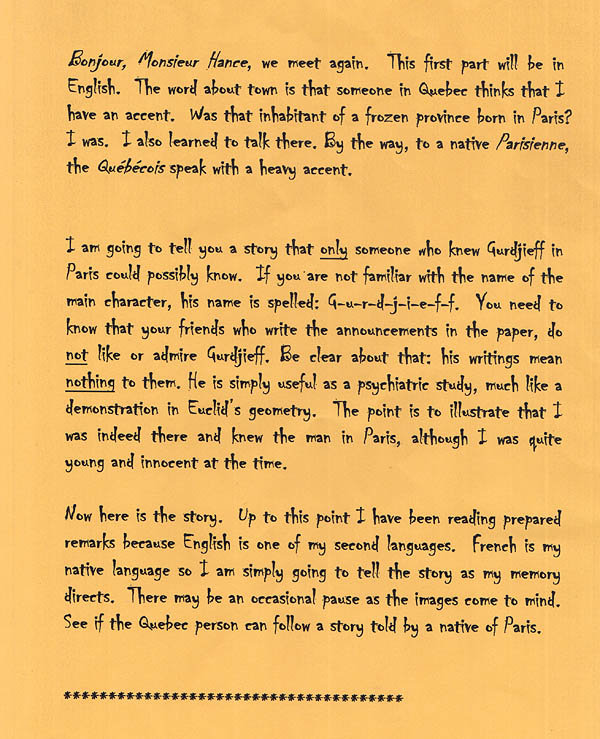 Bonjour, Monsieur Hance, we meet again. This first part will be in
English. The word about town is that someone in Quebec thinks that I
have an accent. Was that inhabitant of a frozen province born in Paris?
I was. I also learned to talk there. By the way, to a native Parisienne,
the Québécois speak with a heavy accent.
I am going to tell you a story that only someone who knew Gurdjieff in
Paris could possibly know. If you are not familiar with the name of the
main character, his name is spelled: G-u-r-d-j-i-e-f-f. You need to
know that your friends who write the announcements in the paper, do
not like or admire Gurdjieff. Be clear about that: his writings mean
nothing to them. He is simply useful as a psychiatric study, much like a
demonstration in Euclid's geometry. The point is to illustrate that I
was indeed there and knew the man in Paris, although I was quite
young and innocent at the time.
Now here is the story. Up to this point I have been reading prepared
remarks because English is one of my second languages. French is my
native language so I am simply going to tell the story as my memory
directs. There may be an occasional pause as the images come to mind.
See if the Quebec person can follow a story told by a native of Paris.
**************************************